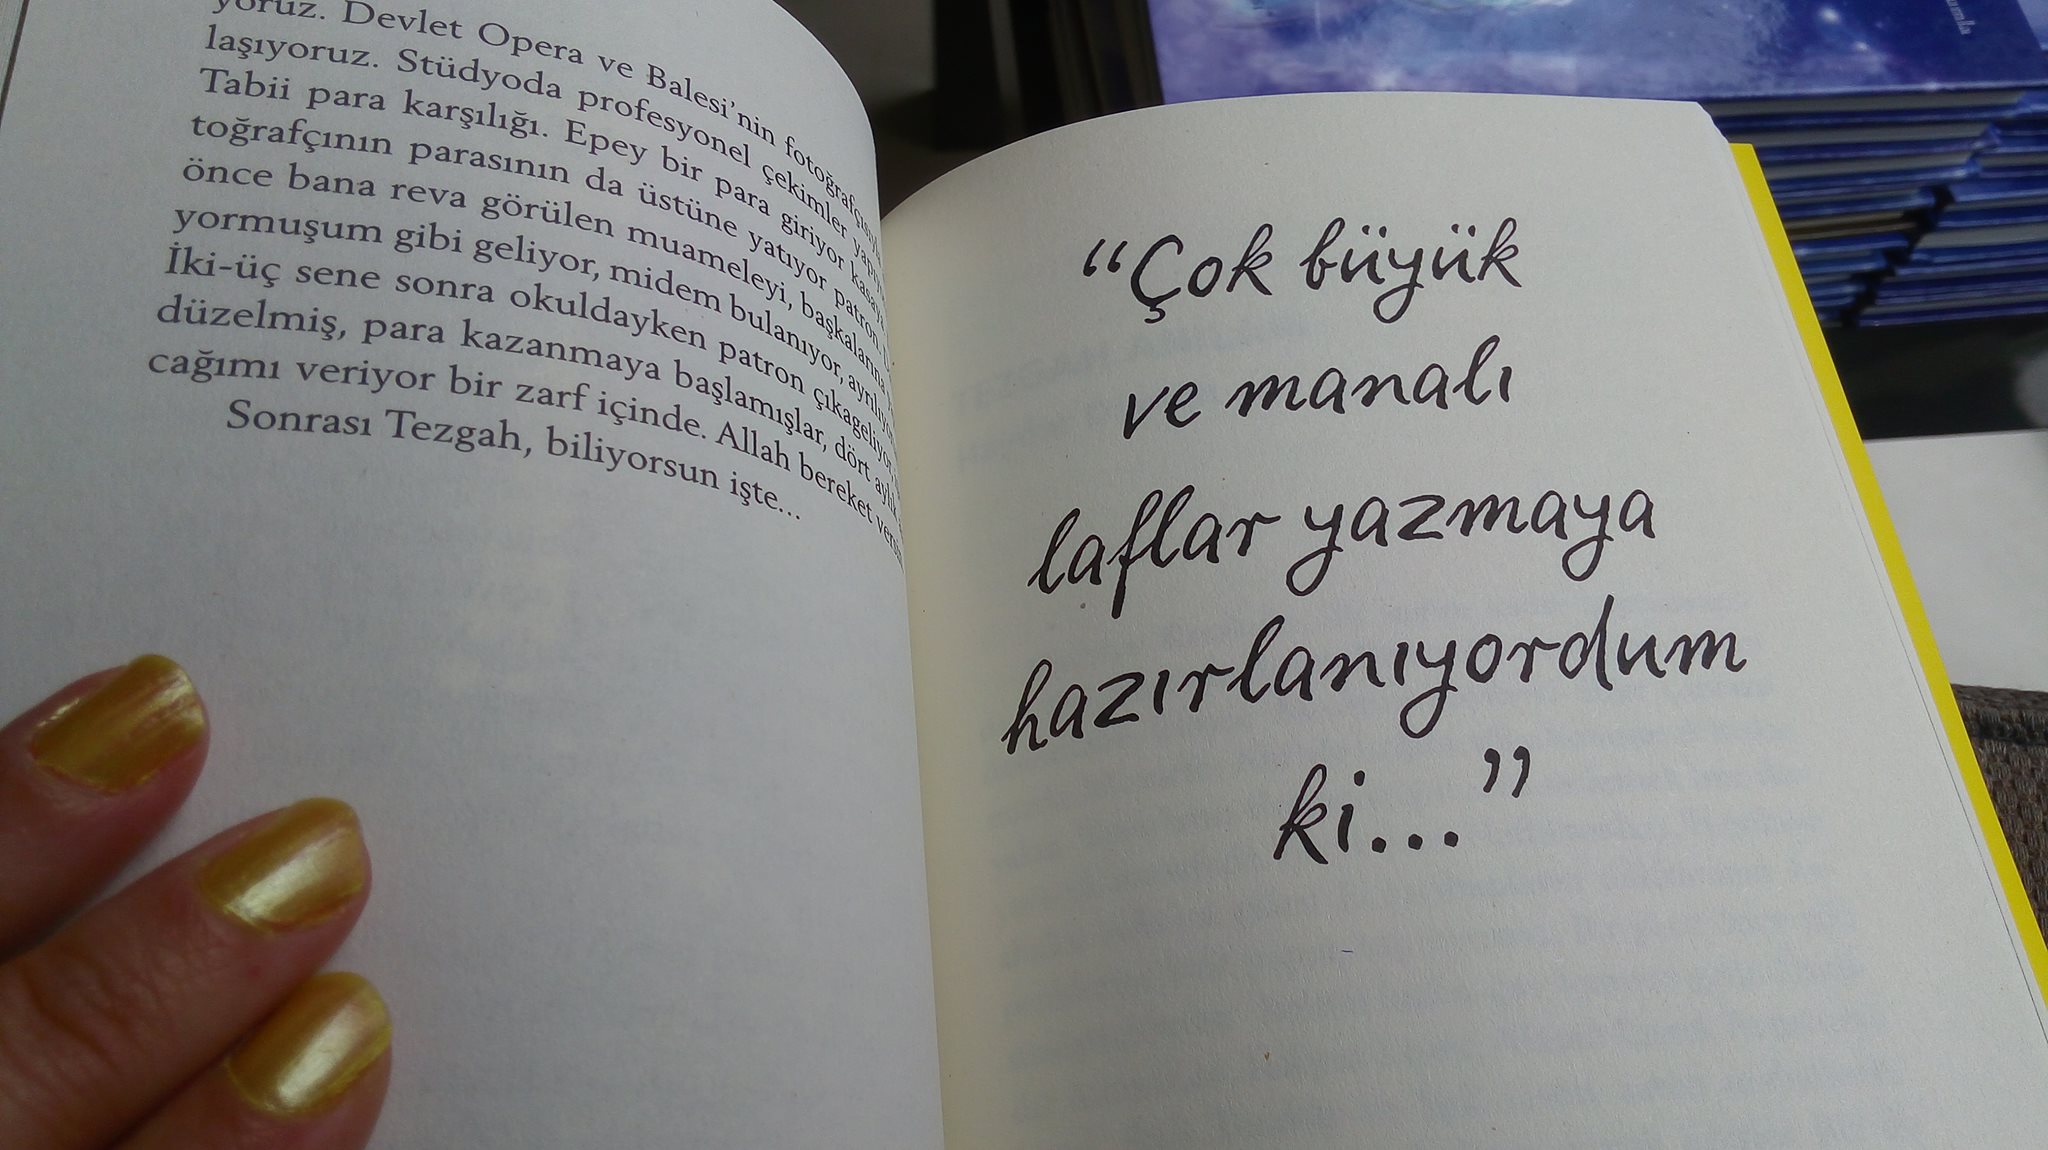 yoruz. Devlet Opera ve Balesi’nin
laşıyoruz. Stüdyoda profesyonel çekimler
Tabii para karşılığı. Epey bir para giriyor kasaya
toğrafçının parasının da üstüne yatıyor patron.
önce bana reva görülen muameleyi, başkalarına
yormuşum gibi geliyor, midem bulanıyor,
İki-üç sene sonra okuldayken patron çıkageliyor,
düzelmiş, para kazanmaya başlamışlar, dört
cağımı veriyor bir zarf içinde. Allah bereket
Sonrası Tezgah, biliyorsun işte...
“Çok büyük
ve manalı
laflar yazmaya
hazırlanıyordum
ki...”